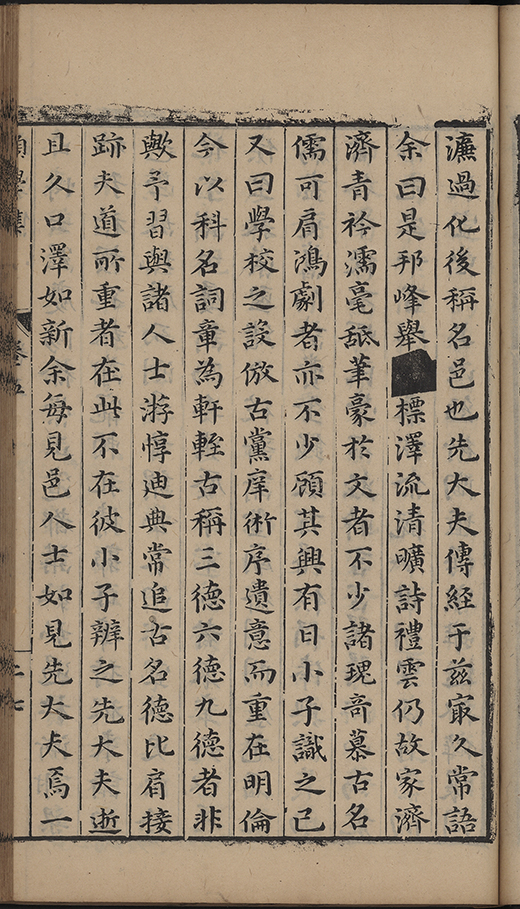 濂過化後稱名邑也先大夫傳經于茲㝡久常語
余曰是邦峰舉標澤流清曠詩禮雲仍故家濟
濟青衿濡毫舐筆豪於文者不少諸瑰奇慕古名
儒可肩鴻劇者亦不少顧其興有日小子識之已
又曰學校之設倣古黨庠術序遺意而重在明倫
今以科名詞章為軒輊古稱三德六德九德者非
歟予習與諸人士游惇迪典常追古名德比肩接
跡夫道所重者在此不在彼小子辨之先大夫逝
且久口澤如新余每見邑人士如見先大夫焉一
卷五
二七